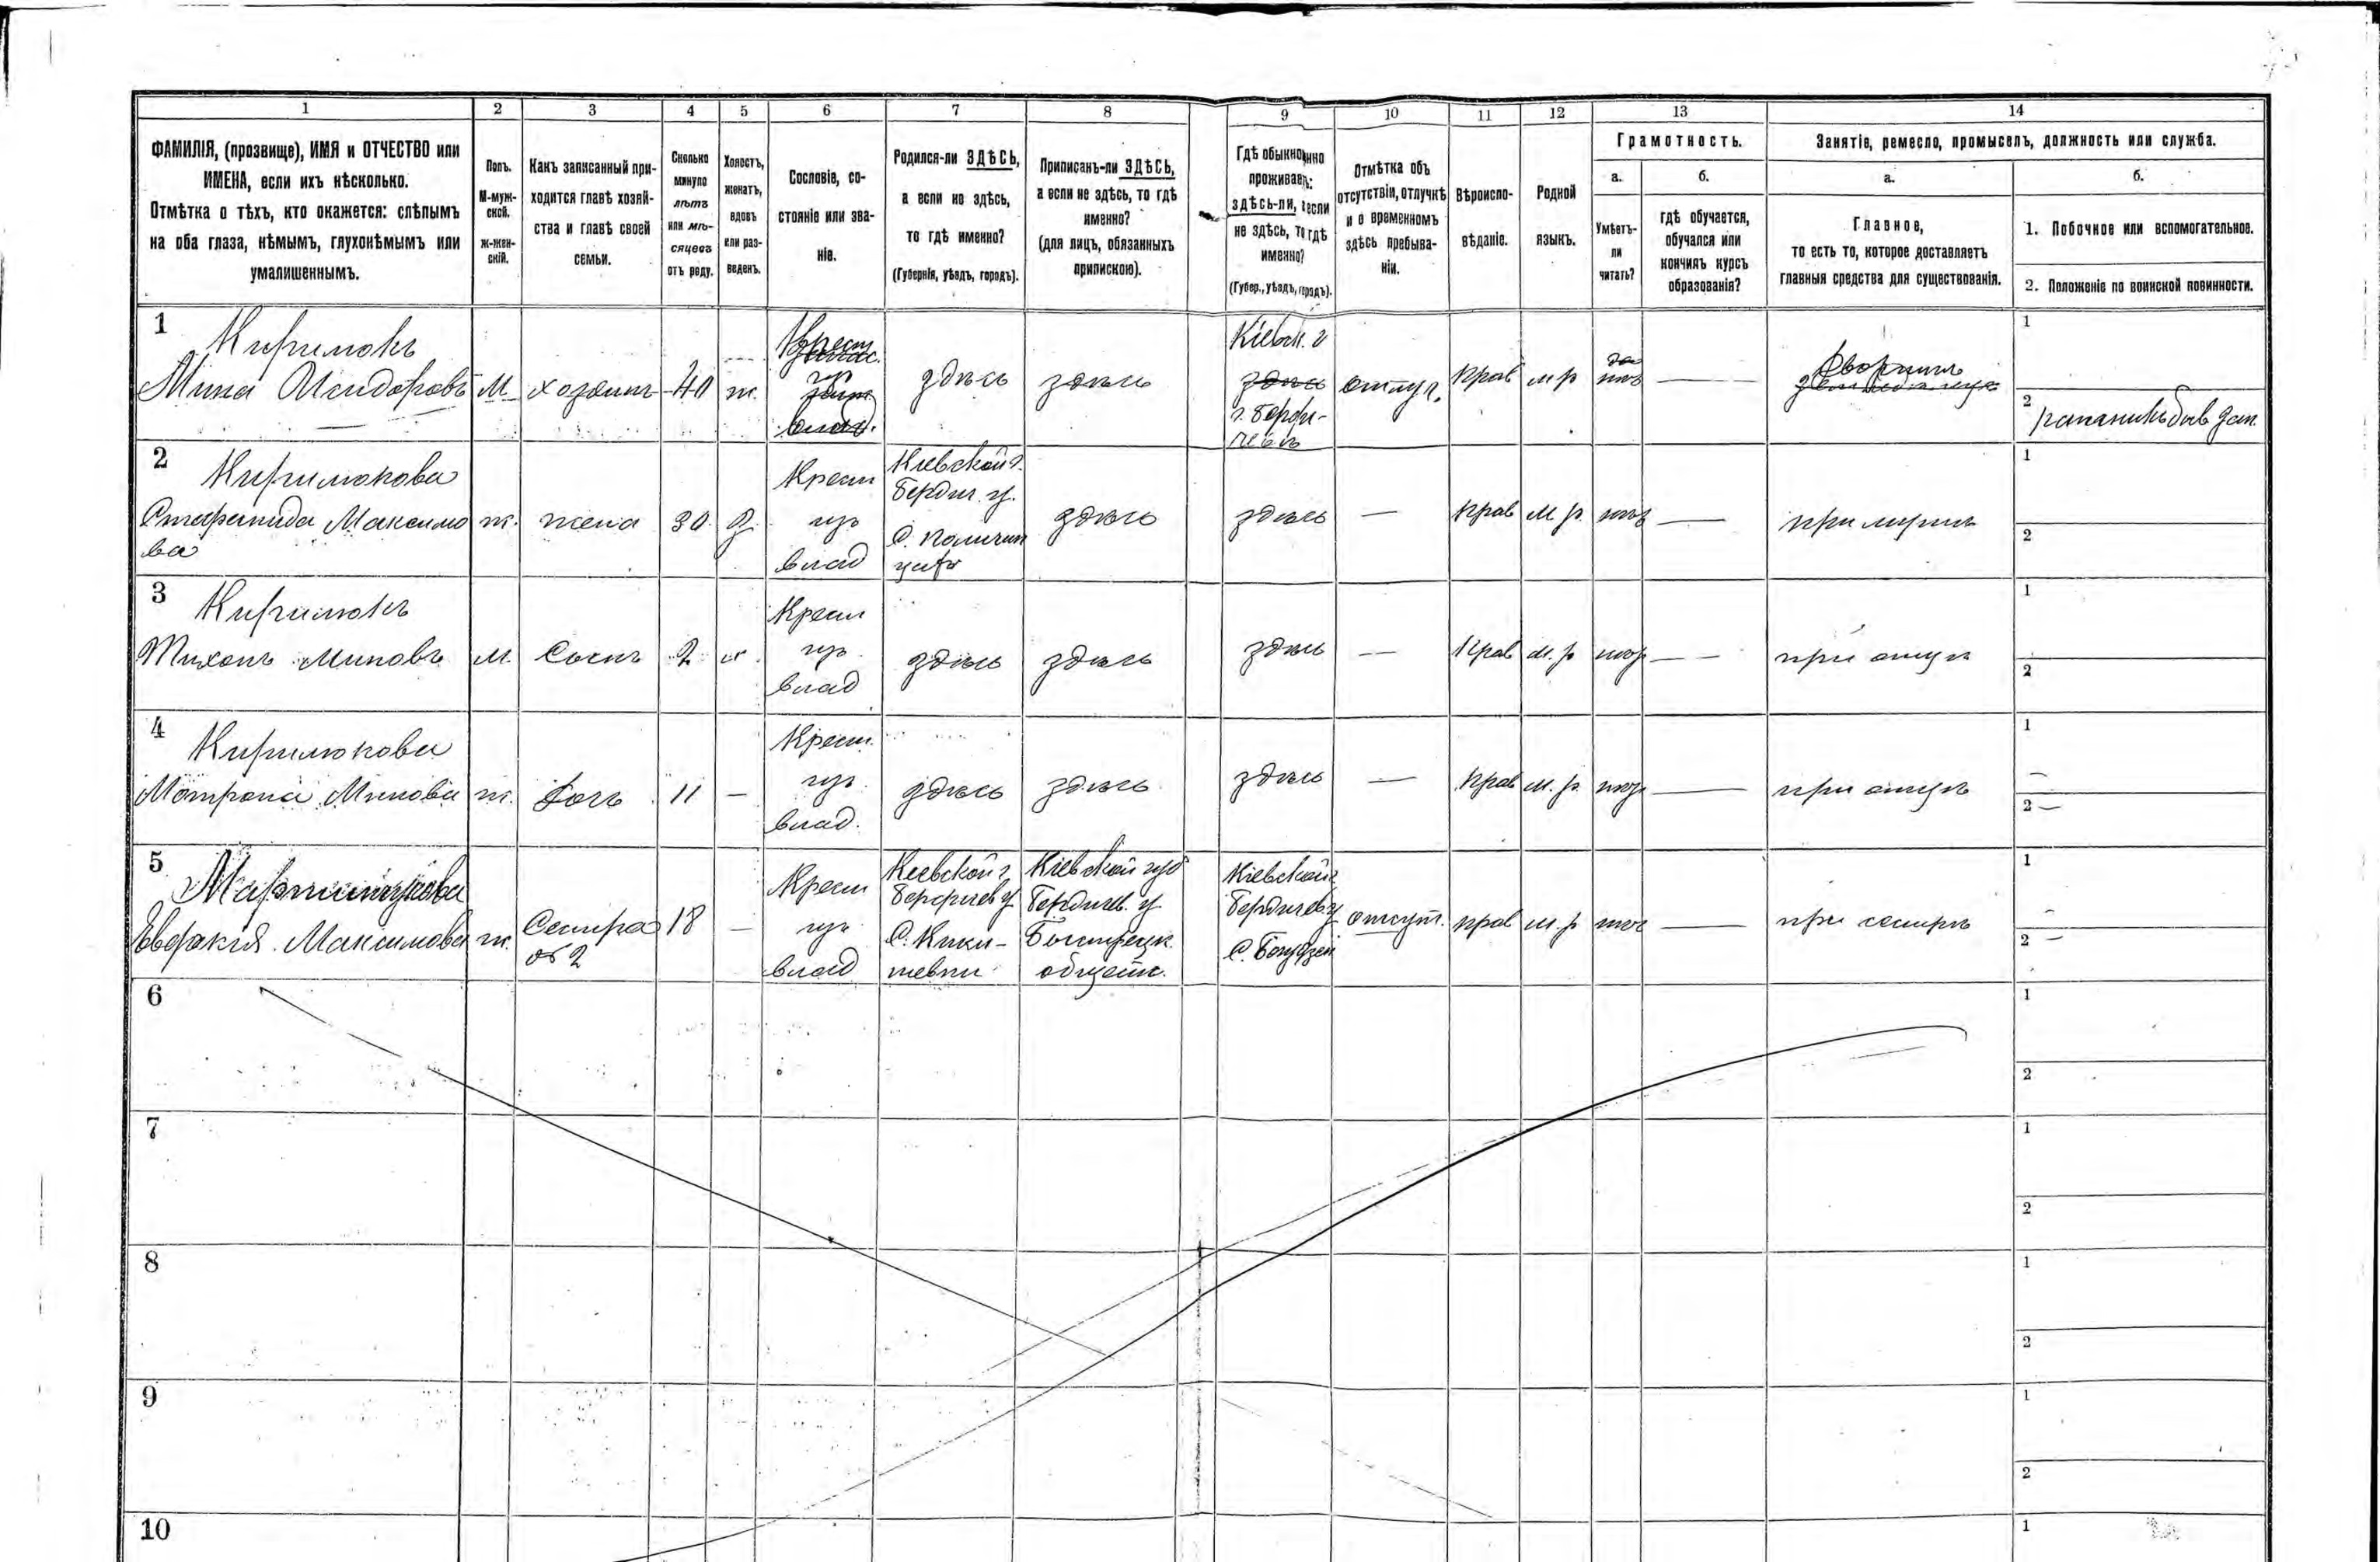 1 2 3 4 5 6 7 8 9 10 11 12 13 14
ФАМИЛІЯ, (прозвище), ИМЯ и ОТЧЕСТВО или
ИМЕНА, если ихъ нѣсколько.
Отмѣтка о тѣхъ, кто окажется: слѣпымъ
на оба глаза, нѣмымъ, глухонѣмымъ или
умалишеннымъ.
Полъ.
М-муж-
ской.
ж-жен-
скій.
Какъ записанный при-
ходится главѣ хозяй-
ства и главѣ своей
семьи.
Сколько
минуло
лѣтъ
или мѣ-
сяцевъ
отъ роду.
Холостъ,
женатъ,
вдовъ
или раз-
веденъ.
Сословіе, со-
стояніе или зва-
ніе.
Родился-ли ЗДѢСЬ,
а если не здѣсь,
то гдѣ именно?
(Губернія, уѣздъ, городъ).
Приписанъ-ли ЗДѢСЬ,
а если не здѣсь, то гдѣ
именно?
(для лицъ, обязанныхъ
припискою).
Гдѣ обыкновенно
проживаетъ:
здѣсь-ли, а если
не здѣсь, то гдѣ
именно?
(Губер., уѣздъ, городъ).
Отмѣтка объ
отсутствіи, отлучкѣ
и о временномъ
здѣсь пребыва-
ніи.
Вѣроиспо-
вѣданіе.
Родной
языкъ.
Грамотность.
а.
Умѣетъ-
ли
читать?
б.
гдѣ обучается,
обучался или
кончилъ курсъ
образованія?
Занятіе, ремесло, промыселъ, должность или служба.
а.
Главное,
то есть то, которое доставляетъ
главныя средства для существованія.
б.
1. Побочное или вспомогательное.
2. Положеніе по воинской повинности.
1
Кирилюкъ
Мина Исидоровъ
М
хозяинъ
40
ж.
Крест.
здѣсь
здѣсь
Кіевск. г
здѣсь
г. Берди-
чевъ
отлуч.
прав
м р
нѣтъ
—
1
2
2
Кирилюкова
Стефанида Максимо
ва
ж.
жена
30
з.
Крест
из
влад
Кіевской г.
Бердич. у.
С.
здѣсь
здѣсь
—
прав
м р.
—
при мужѣ
1
2
3
Кирилюкъ
Тихонъ Миновъ
М.
Сынъ
2
Крест
из
влад
здѣсь
здѣсь
здѣсь
—
Прав
м. р
—
при отцѣ
1
2
4
Кирилюкова
Мотрона Минова
ж.
Дочь
11
—
Крест.
из
влад.
здѣсь
здѣсь
здѣсь
—
прав
м. р.
—
при отцѣ
1
2 —
5
Евдокія Максимова
ж.
Сестра
об 2
18
—
Крест
из
влад
Кіевской г.
Бердичев у
С. Кики-
шевки
Кіевской губ
Бердичев. у
Быстрецк.
общест.
Кіевской г
Бердичев у
С.
отсут.
прав
м. р
—
при сестрѣ
1
2 —
6
1
2
7
1
2
8
1
2
9
1
2
10
1